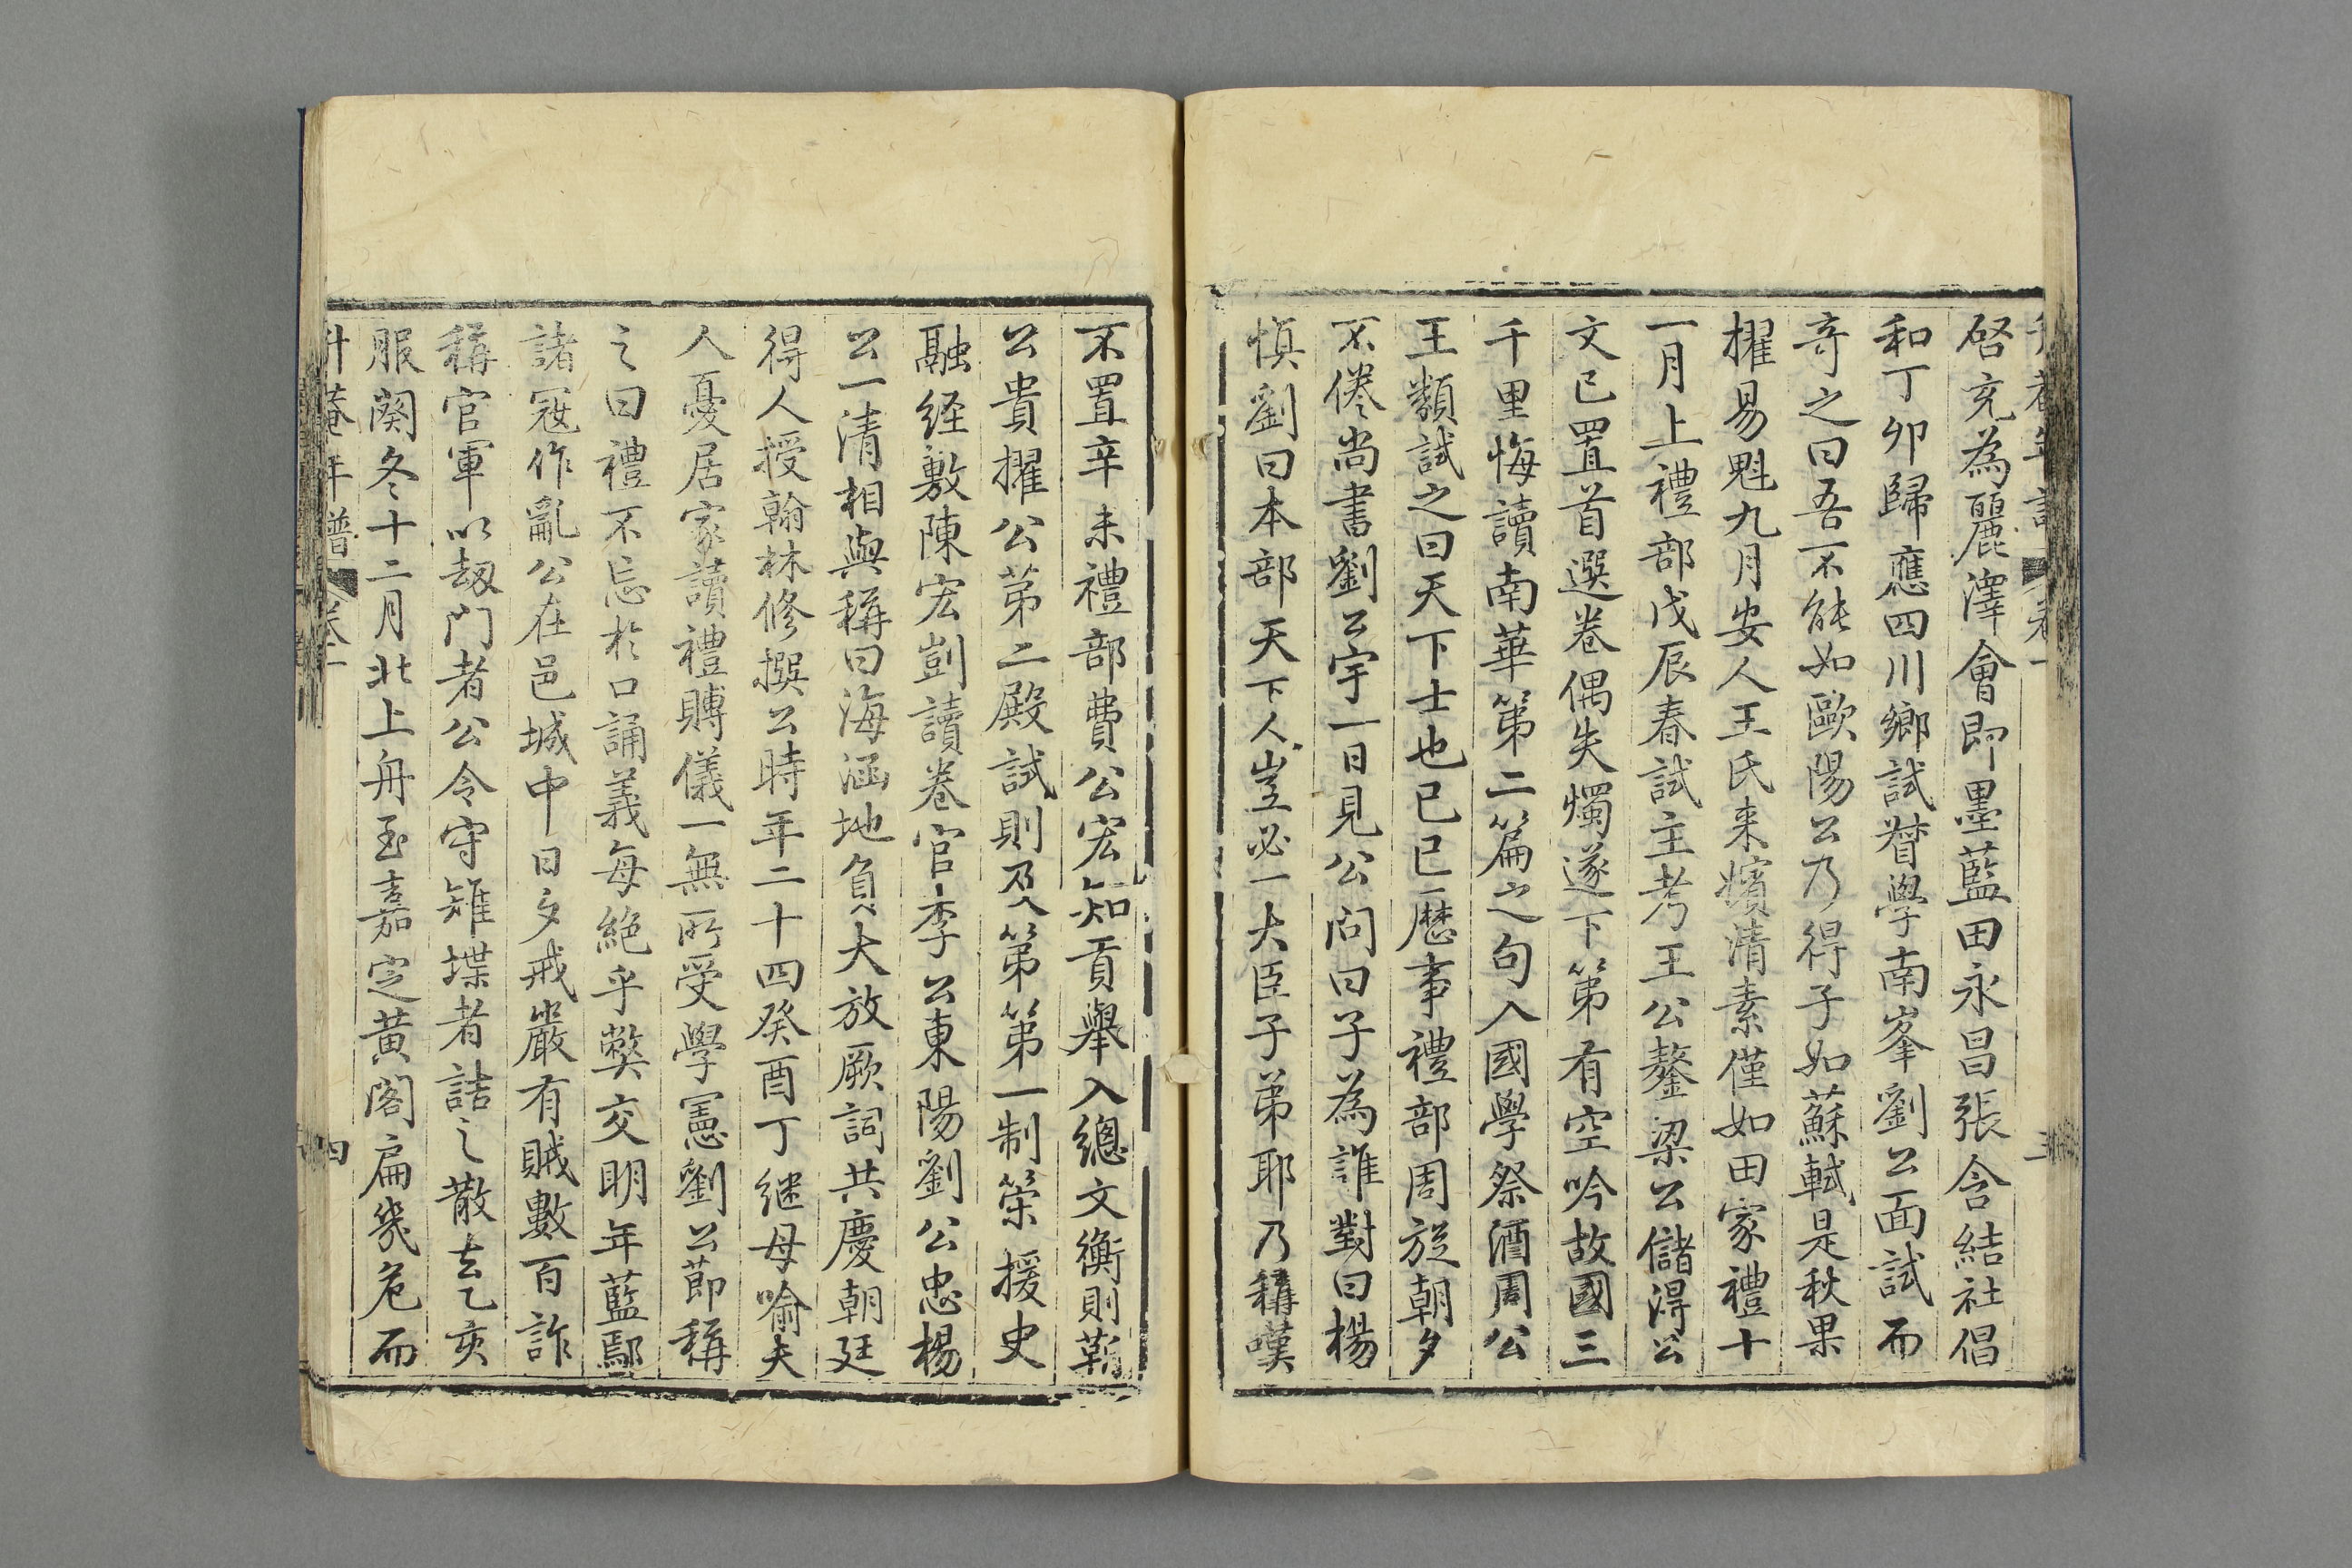 啓充為麗澤會即墨藍田永昌張含結社倡
和丁卯歸應四川鄉試督學南峯劉公面試而
奇之曰吾不能如歐陽公乃得子如蘇軾是秋果
擢易魁九月安人王氏来嬪清素僅如田家禮十
一月上禮部戊辰春試主考王公鏊梁公儲得公
文已置首選卷偶失燭遂下第有空吟故國三
千里悔讀南華第二篇之句入國學祭酒周公
王類試之曰天下士也已巳歷事禮部周旋朝夕
不倦尚書劉公宇一日見公問曰子為誰對曰楊
慎劉曰本部天下人豈必一大臣子弟耶乃稱嘆
不置辛未禮部費公宏知貢舉入總文衡則靳
公貴擢公苐二殿試則及第第一制策援史
融経敷陳宏剴讀卷官李公東陽劉公忠楊
公一清相與稱曰海涵地負大放厥詞共慶朝廷
得人授翰林修撰公時年二十四癸酉丁継母喻夫
人憂居家讀禮賻儀一無所受學憲劉公節稱
之曰禮不忘於口誦義每絶乎獘交明年藍鄢
諸冦作亂公在邑城中日夕戒嚴有賊數百詐
稱官軍以刼門者公令守雉堞者詰之散去乙亥
服闋冬十二月北上舟至嘉定黃閣扁幾危而
升菴年譜 卷一 四